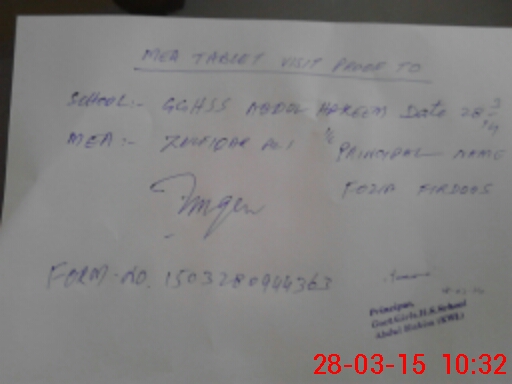 MEA TABLET VISIT PROOF TO
SCHOOL:- GGHSS ABDUL HAKEEM Date 28
MEA:- ZULFIQAR ALI PRINCIPAL NAME
FOZIA FIRDOUS
FORM-NO. 1503280944363
Principal
Govt Girls H.S. School
Abdul Hakim (KWL)
28-03-15 10:32